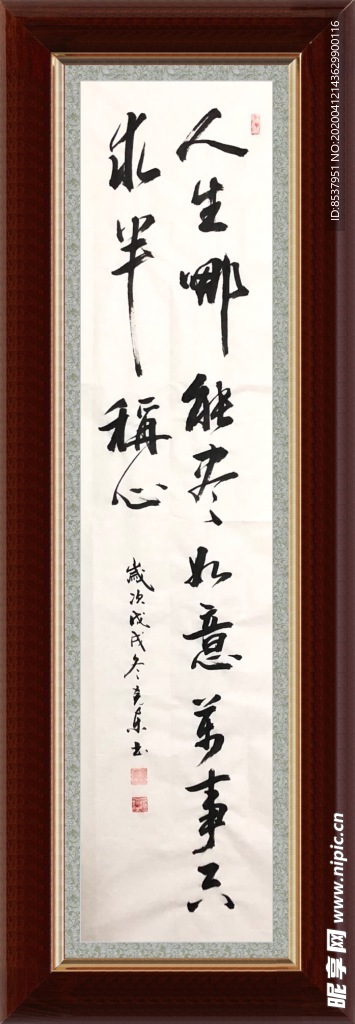 人生哪能尽如意萬事只
求半稱心
歲次戊戌冬
ID:8537951 NO:20200412143629900116
昵享网 www.nipic.cn